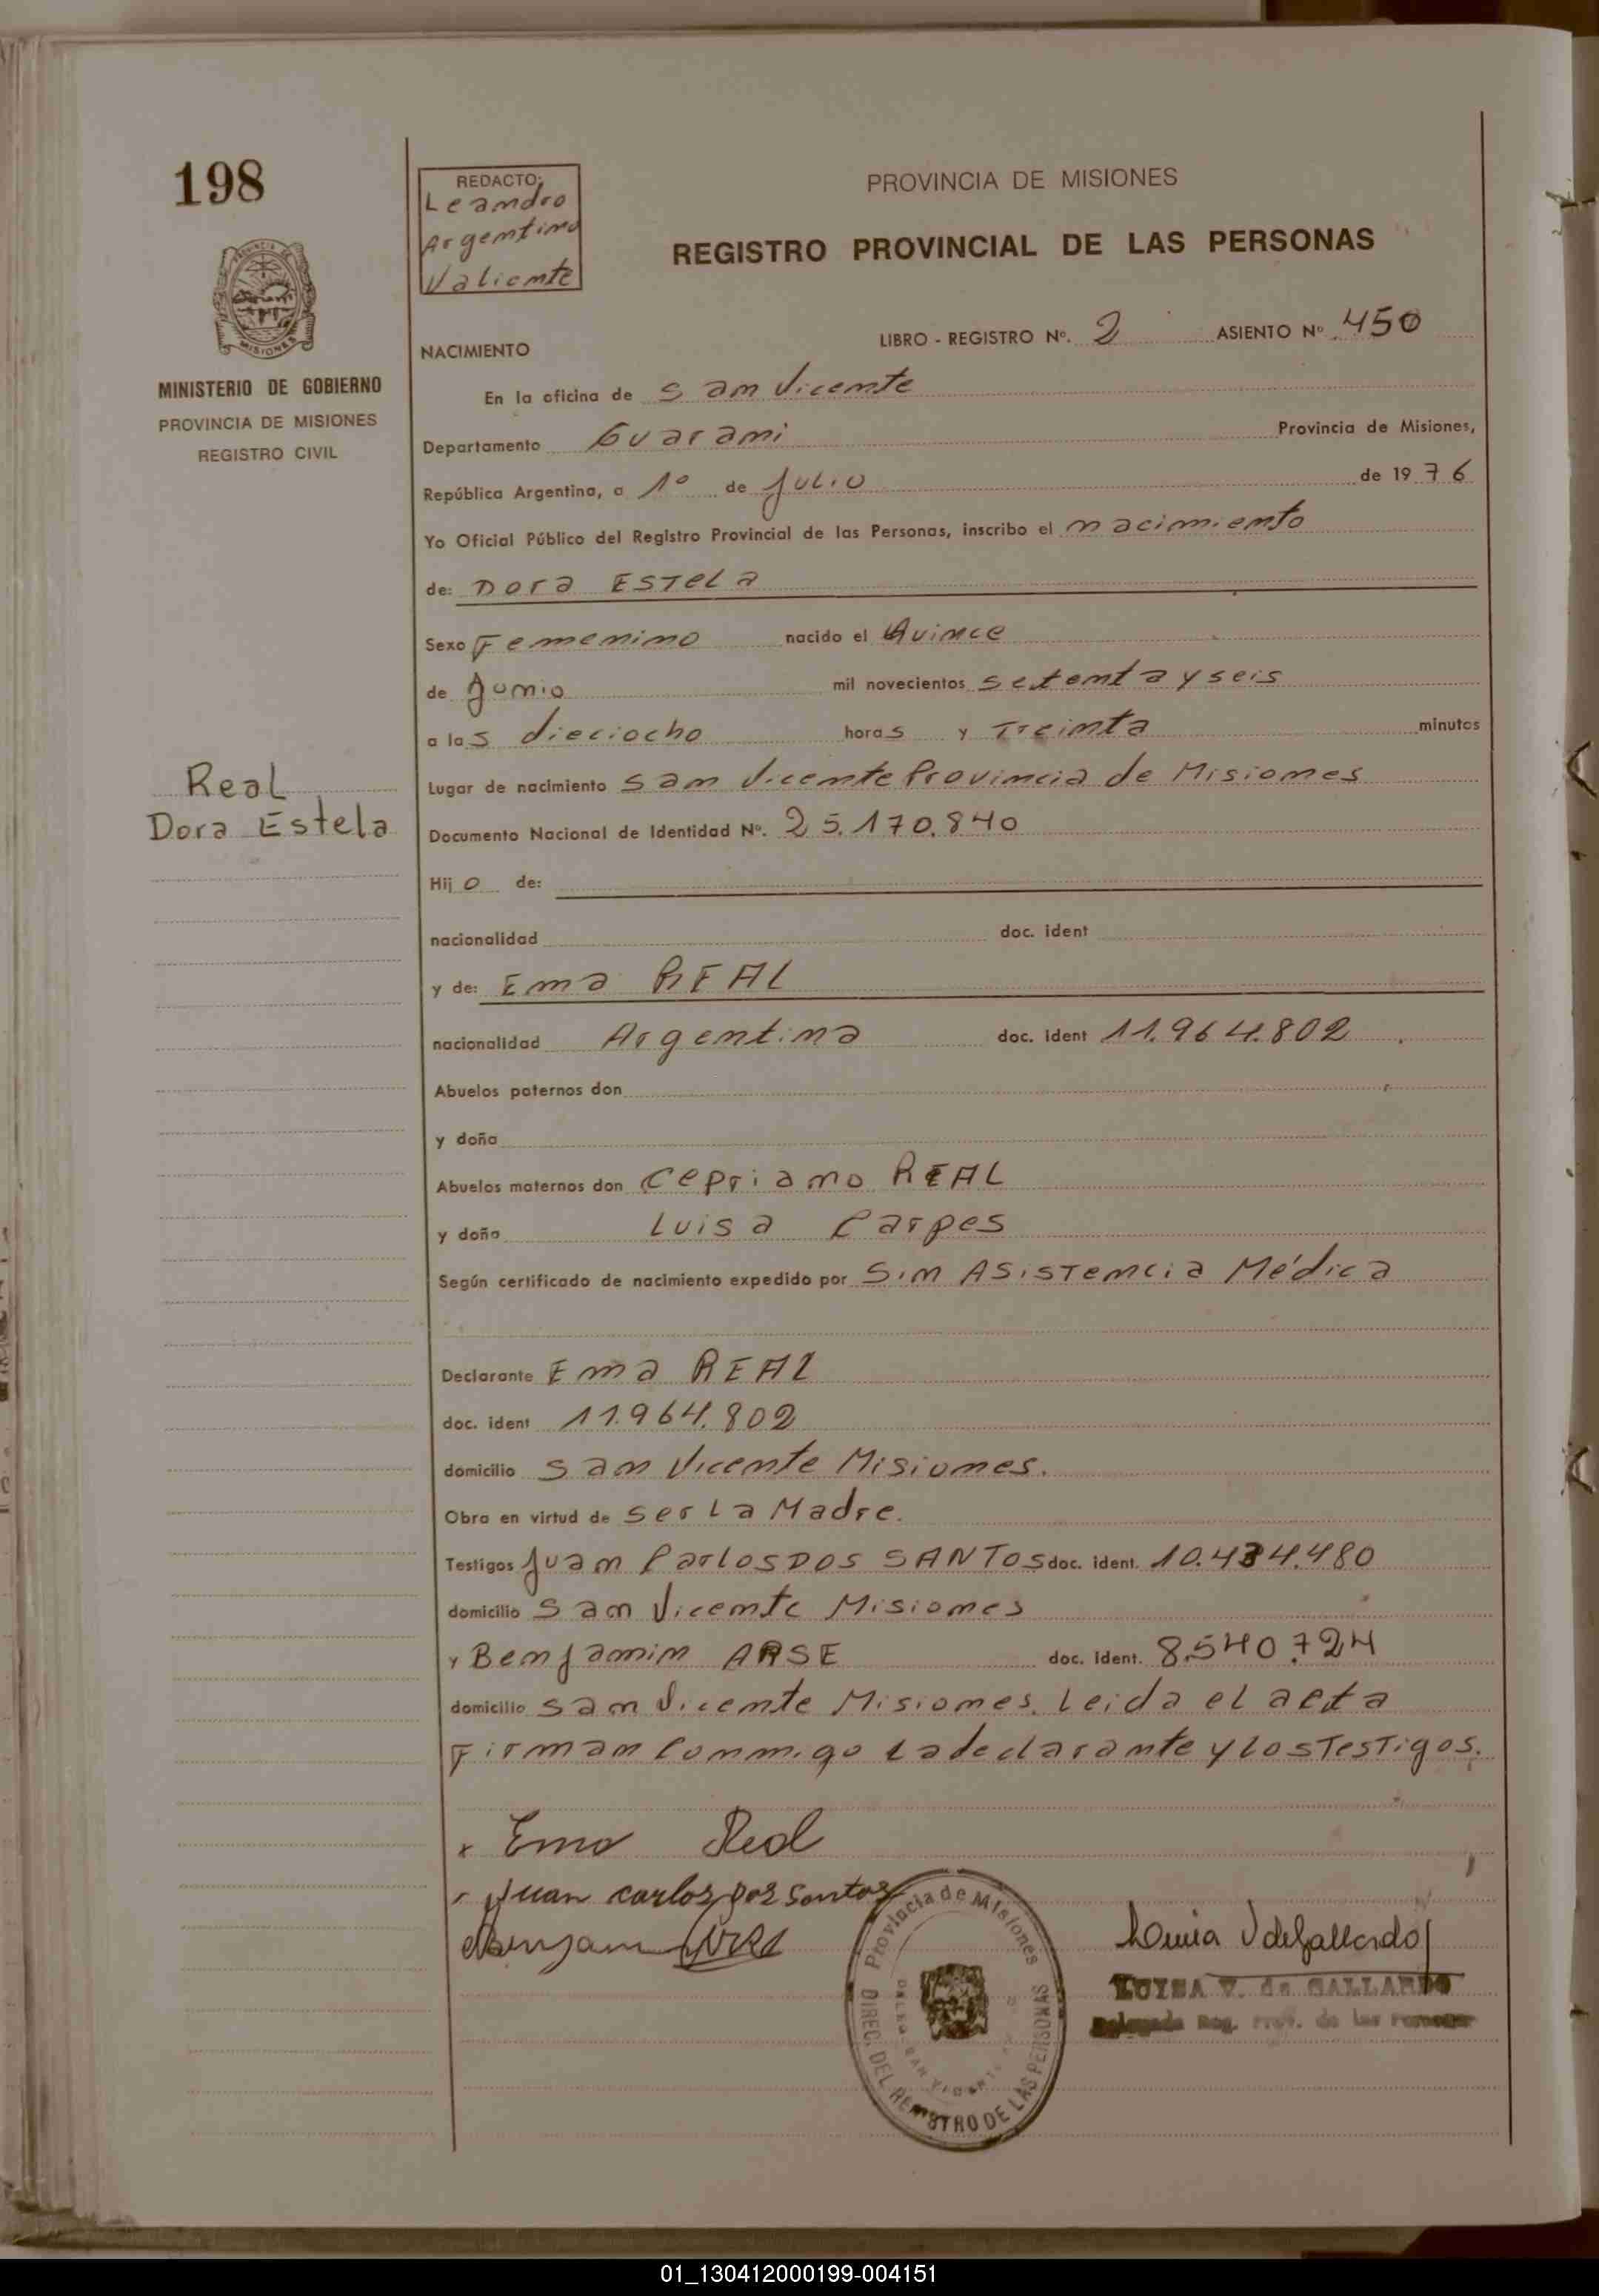 198
REDACTO:
Leandro
Argentino
Valiente
PROVINCIA DE MISIONES
REGISTRO PROVINCIAL DE LAS PERSONAS
MISIONES
MINISTERIO DE GOBIERNO
PROVINCIA DE MISIONES
REGISTRO CIVIL
NACIMIENTO
LIBRO - REGISTRO Nº. 2 ASIENTO Nº 450
En la oficina de San Vicente
Departamento Guarani Provincia de Misiones,
República Argentina, a 1º de Julio de 1976
Yo Oficial Público del Registro Provincial de las Personas, inscribo el nacimiento
de: Dora Estela
Sexo Femenino nacido el Quince
de Junio mil novecientos setenta y seis
a las dieciocho horas y Treinta minutos
Lugar de nacimiento San Vicente Provincia de Misiones
Real
Dora Estela
Documento Nacional de Identidad Nº. 25.170.840
Hijo de:
nacionalidad doc. ident
y de: Ema REAL
nacionalidad Argentina doc. ident 11.964.802
Abuelos paternos don
y doña
Abuelos maternos don Cepriano REAL
y doña Luisa Carpes
Según certificado de nacimiento expedido por Sin Asistencia Médica
Declarante Ema REAL
doc. ident 11.964.802
domicilio San Vicente Misiones.
Obra en virtud de ser La Madre.
Testigos Juan Carlos DOS SANTOS doc. ident. 10.434.480
domicilio San Vicente Misiones
y Benjamin ARSE doc. ident. 8.540.724
domicilio San Vicente Misiones. Leida el acta
Firman Conmigo la declarante y los Testigos.
x Ema Real
Juan carlos Dos Santos
Benjamin
Provincia de Misiones
DIREC. DEL REGISTRO DE LAS PERSONAS
Luisa V de Gallardo
LUISA V. de GALLARDO
Delegada Reg. Prov. de las Personas
01_130412000199-004151